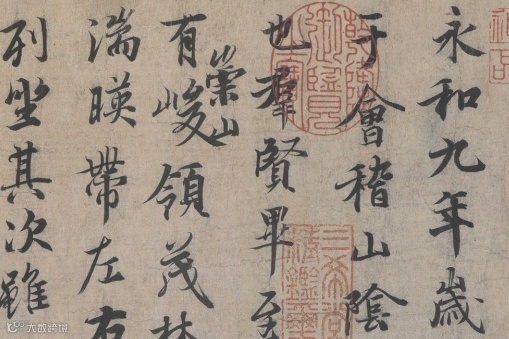 永和九年歲
于會稽山陰
也羣賢畢至
有崇山峻領茂林
湍暎帶左右
列坐其次雖
大数跨境